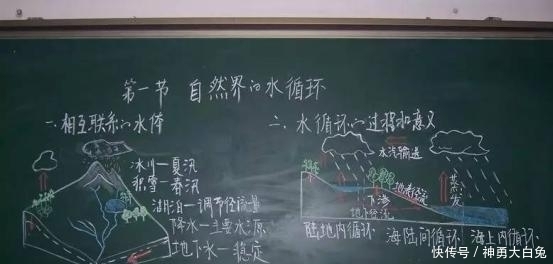 第一节 自然界的水循环
一、相互联系的水体
冰川—夏汛
积雪—春汛
湖泊—调节径流量
降水—主要水源
地下水—稳定
二、水循环的过程和意义
水汽输送
地表径流
下渗
地下径流
蒸发
陆地内循环 海陆间循环 海上内循环
快传号/神勇大白兔